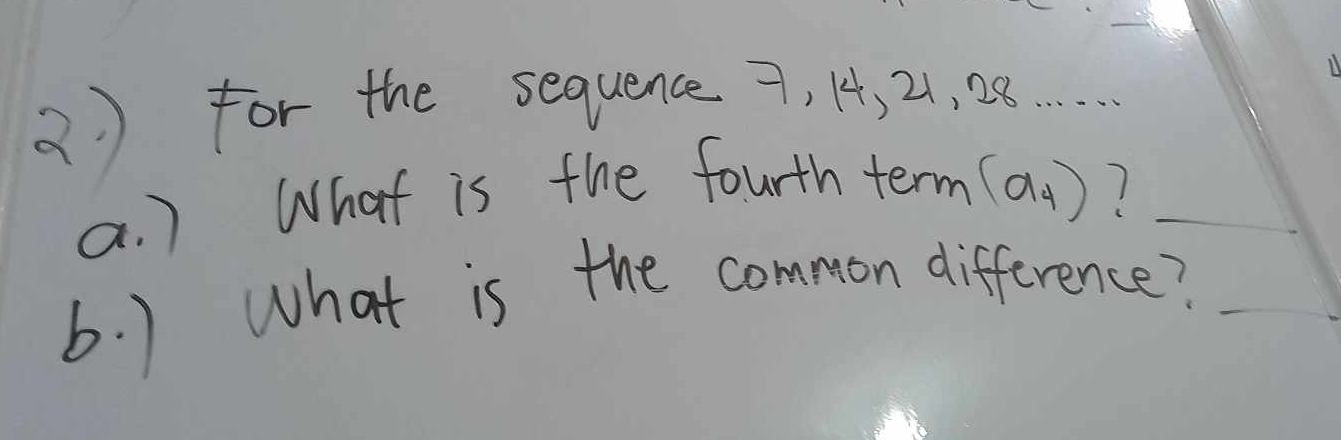 2.) For the sequence 7, 14, 21, 28......
a.) What is the fourth term (a₄)? ____
b.) What is the common difference? ____